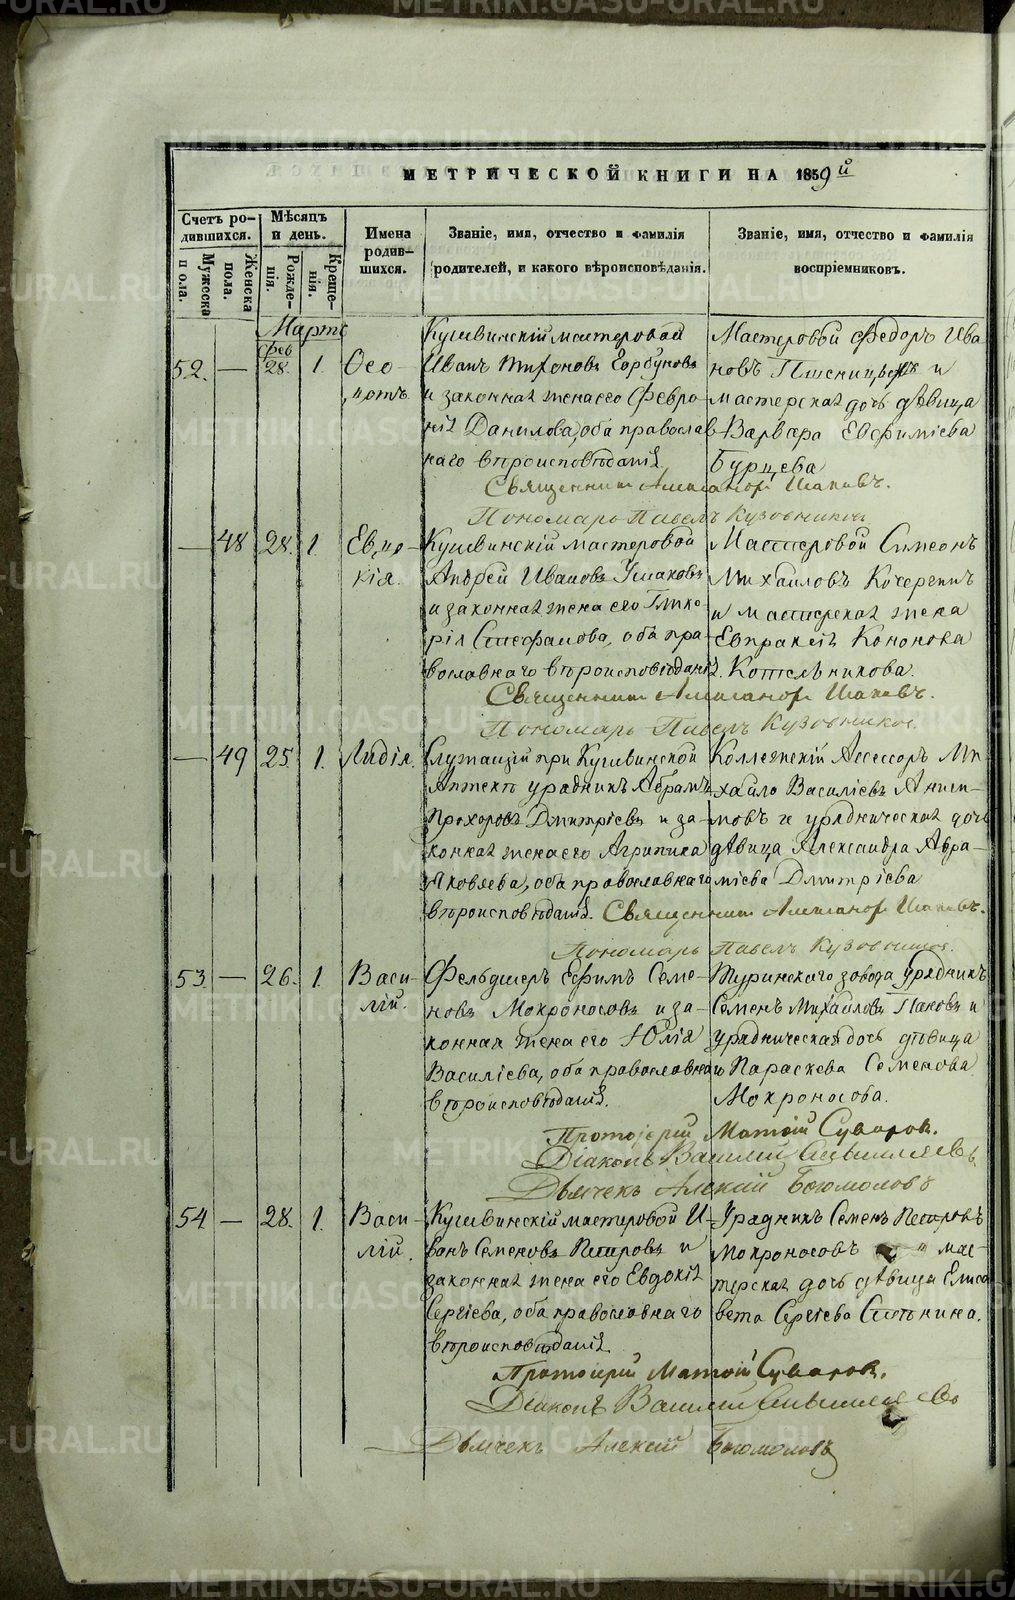 МЕТРИЧЕСКОЙ КНИГИ НА 1859й
Счетъ ро-
дившихся.
Мужеска
пола.
Женска
пола.
Мѣсяцъ
и день.
Рожде-
нія.
Креще-
нія.
Имена
родив-
шихся.
Званіе, имя, отчество и фамилія
родителей, и какого вѣроисповѣданія.
Званіе, имя, отчество и фамилія
воспріемниковъ.
Марта
52. — Фев 28. 1.
Ѳео-
дотъ
Кушвинскій мастеровой
Иванъ Тихоновъ Горбуновъ
и законная жена его Февро-
нія Данилова, оба православ-
наго вѣроисповѣданія
Мастеровой Федоръ Ива
новъ и
мастерская дочь дѣвица
Варвара Евфиміева
Бурцева
Священникъ Александръ
Пономарь Павелъ Кузовниковъ
— 48 28. 1.
Евдо-
кія.
Кушвинскій мастеровой
Андрей Ивановъ Ушаковъ
и законная жена его Глике-
рія Стефанова, оба пра-
вославнаго вѣроисповѣданія.
Мастеровой Симеонъ
Михаиловъ Кочергинъ
и мастерская жена
Евпраксія Кононова
Котельникова.
Священникъ Александръ
Пономарь Павелъ Кузовниковъ.
— 49 25. 1.
Лидія.
Служащій при Кушвинской
Аптекѣ урядникъ Абрамъ
Прохоровъ Дмитріевъ и за-
конная жена его Агрипина
Яковлева, оба православнаго
вѣроисповѣданія.
Коллежскій Асессоръ Ми-
хаило Василіевъ Аниси-
мовъ и урядническая дочь
дѣвица Александра Авра-
міева Дмитріева
Священникъ Александръ
Пономарь Павелъ Кузовниковъ.
53 — 26. 1.
Васи-
лій.
Фельдшеръ Ефимъ Семе-
новъ Мокроносовъ и за-
конная жена его Юлія
Василіева, оба православнаго
вѣроисповѣданія.
Туринскаго завода урядникъ
Семенъ Михаиловъ Поповъ и
урядническая дочь дѣвица
Параскева Семенова
Мокроносова.
Протоіерей Матѳій Суворовъ.
Діаконъ Василій
Дьячекъ Алексій Богомоловъ
54 — 28. 1.
Васи-
лій.
Кушвинскій мастеровой И-
ванъ Семеновъ Петровъ и
законная жена его Евдокія
Сергіева, оба православнаго
вѣроисповѣданія.
Урядникъ Семенъ Петровъ
Мокроносовъ и мас-
терская дочь дѣвица Елиса
вета Сергіева
Протоіерей Матѳій Суворовъ.
Діаконъ Василій
Дьячекъ Алексій Богомоловъ
METRIKI.GASO-URAL.RU